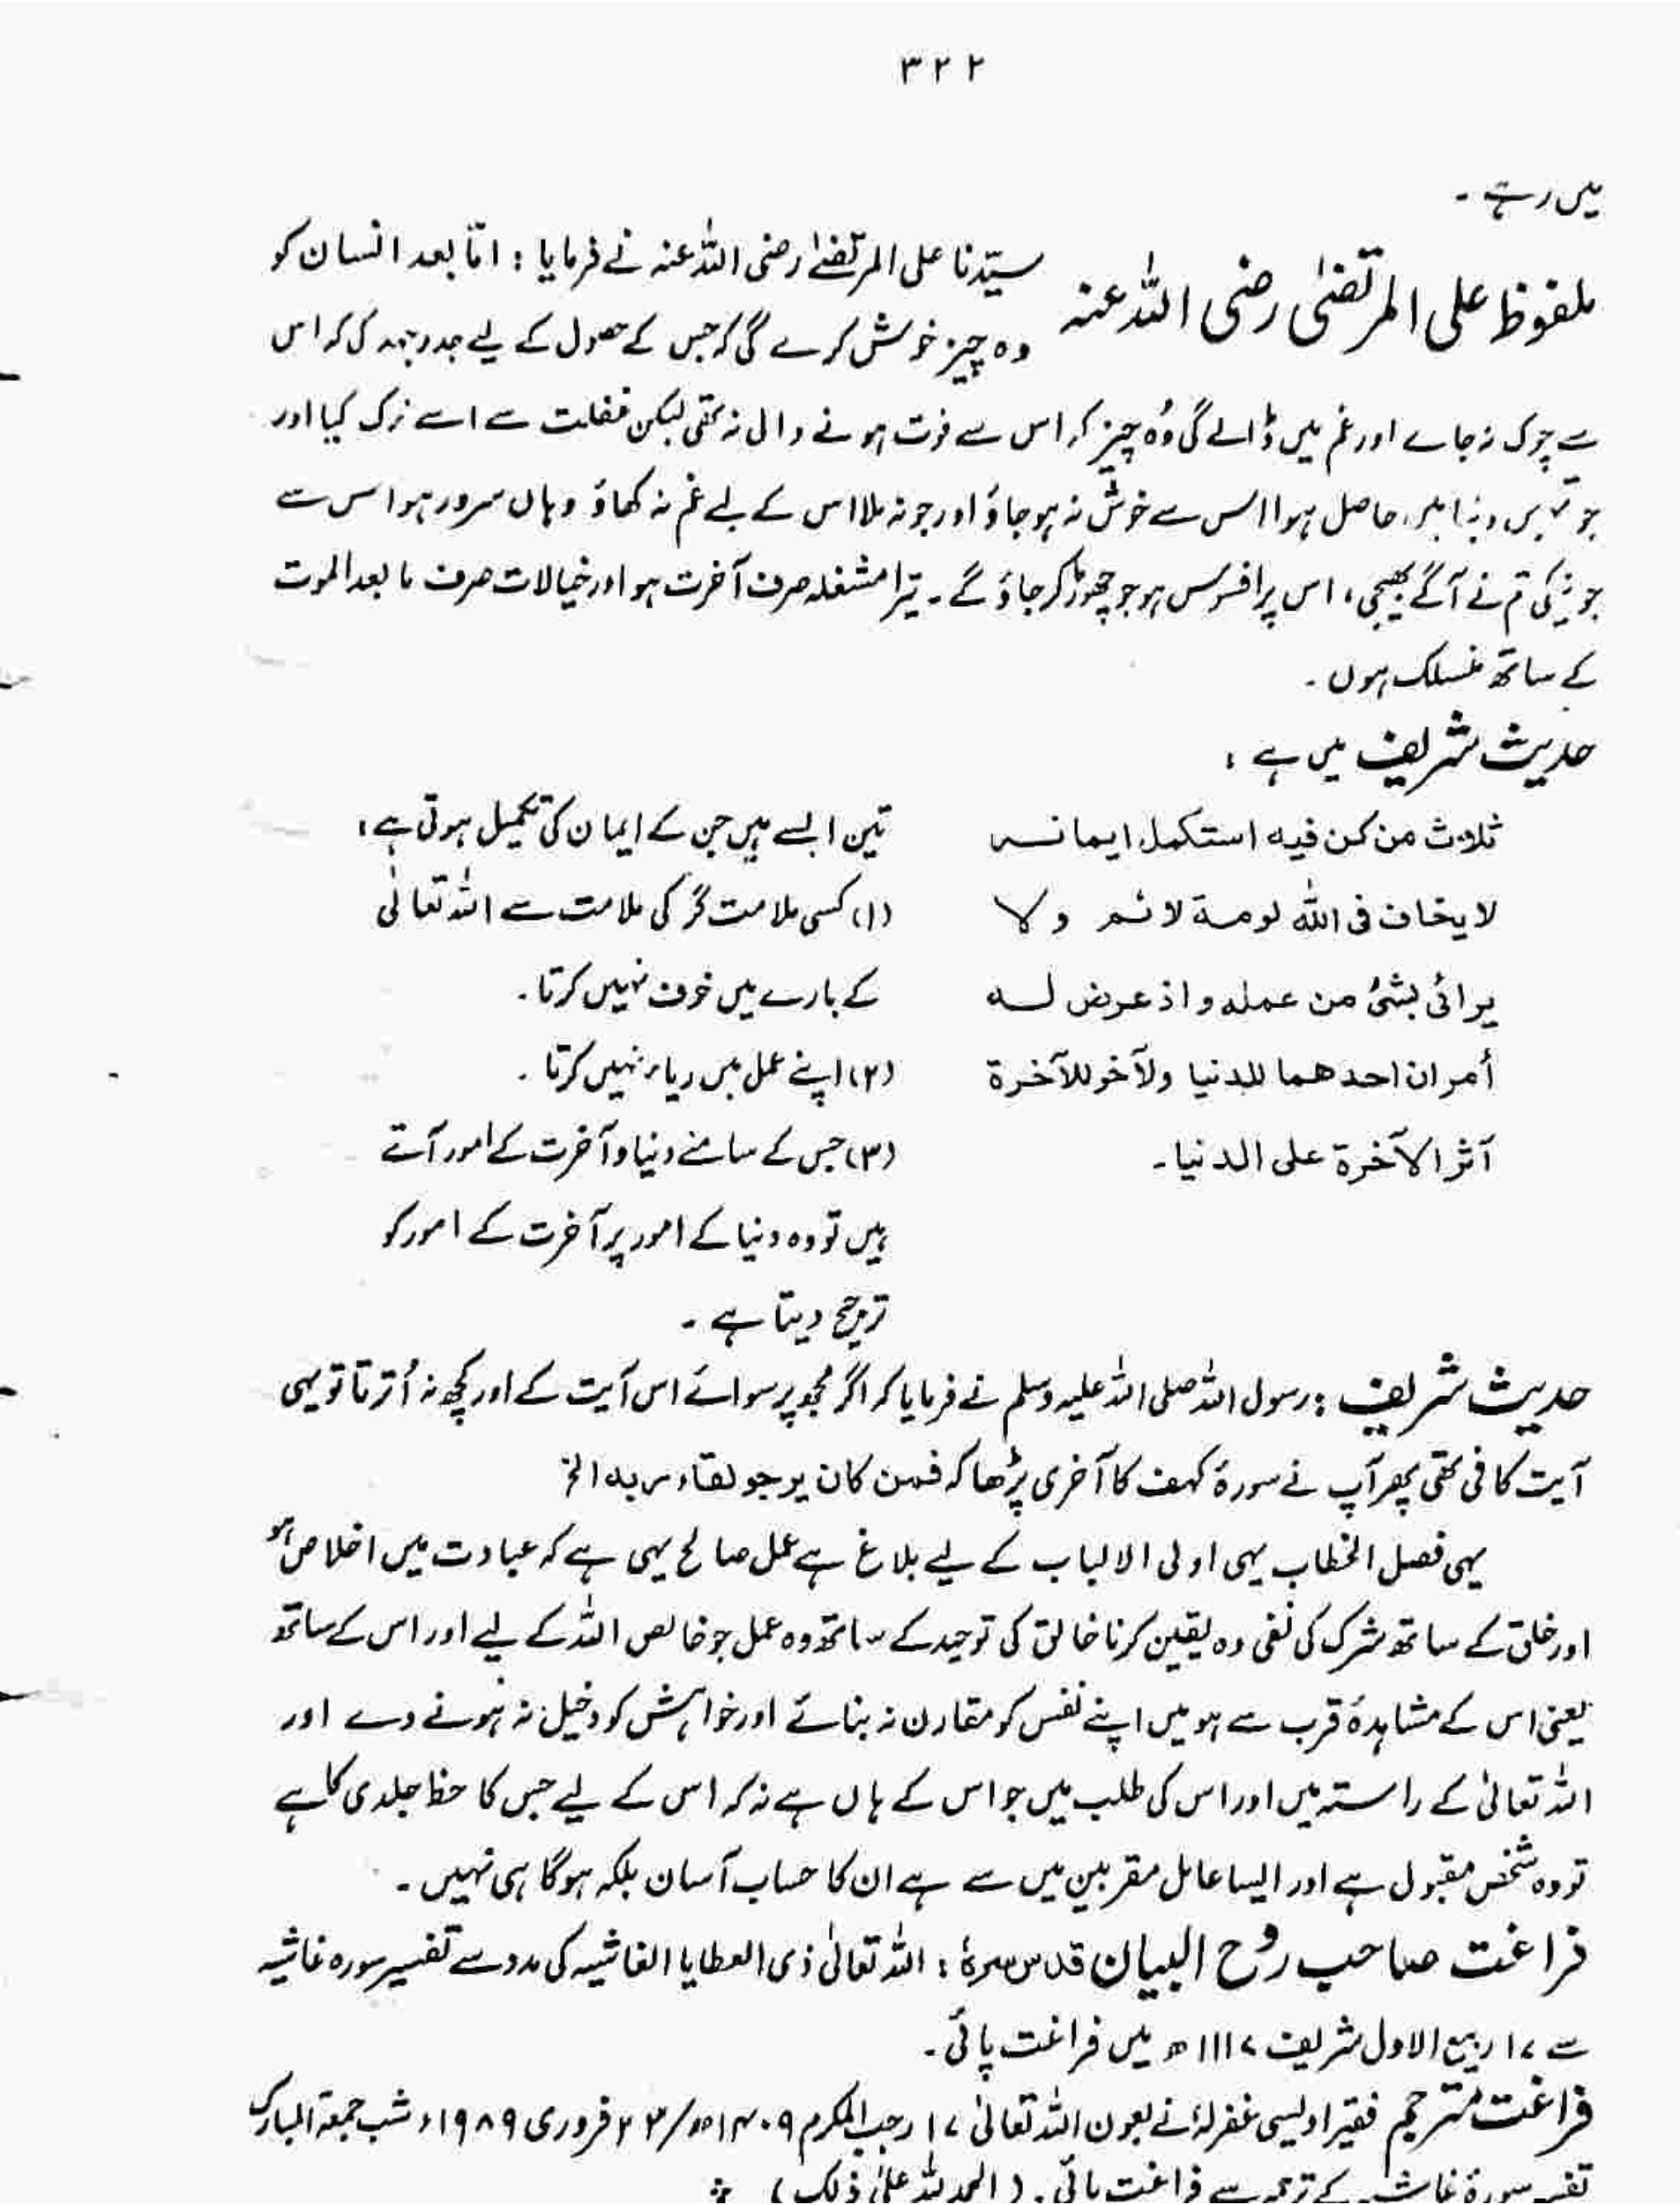 ۳۲۲
میں رہے ۔
ملفوظ علی المرتضیٰ رضی اللہ عنہ
سیّدنا علی المرتضےٰ رضی اللہ عنہ نے فرمایا : امّا بعد انسان کو
وہ چیز خوش کرے گی کہ جس کے حصول کے لیے جدوجہد کی کہ اس
سے چوک نہ جائے اور غم میں ڈالے گی وُہ چیز کہ اس سے فوت ہونے والی نہ تھی لیکن غفلت سے اسے ترک کیا اور
جو تمہیں دنیا میں حاصل ہوا اس سے خوش نہ ہو جاؤ اور جو نہ ملا اس کے لیے غم نہ کھاؤ وہاں سرور ہو اس سے
جو نیکی تم نے آگے بھیجی ، اس پر افسوس ہو جو چھوڑ کر جاؤ گے ۔ تیرا مشغلہ صرف آخرت ہو اور خیالات صرف ما بعد الموت
کے ساتھ منسلک ہوں ۔
حدیث شریف میں ہے :
ثلاث من کن فیه استکمل ایمانه
لا یخاف فی اللہ لومة لائم ولا
یرائی بشیٔ من عمله و اذ عرض له
أمران احدهما للدنیا ولآخر للآخرة
آثر الآخرة علی الدنیا ۔
تین ایسے ہیں جن کے ایمان کی تکمیل ہوتی ہے :
(۱) کسی ملامت گر کی ملامت سے اللہ تعالٰی
کے بارے میں خوف نہیں کرتا ۔
(۲) اپنے عمل میں ریاء نہیں کرتا ۔
(۳) جس کے سامنے دنیا و آخرت کے امور آتے
ہیں تو وہ دنیا کے امور پر آخرت کے امور کو
ترجیح دیتا ہے ۔
حدیث شریف : رسول اللہ صلی اللہ علیہ وسلم نے فرمایا کہ اگر مجھ پر سوائے اس آیت کے اور کچھ نہ اُترتا تو یہی
آیت کافی تھی پھر آپ نے سورۂ کہف کا آخری پڑھا کہ فمن کان یرجو لقاء ربه الخ
یہی فصل الخطاب یہی اولی الالباب کے لیے بلاغ ہے عمل صالح یہی ہے کہ عبادت میں اخلاص ہو
اور خلق کے ساتھ شرک کی نفی وہ یقین کرنا خالق کی توحید کے ساتھ وہ عمل جو خالص اللہ کے لیے اور اس کے ساتھ
یعنی اس کے مشاہدۂ قرب سے ہو میں اپنے نفس کو مقارن نہ بنائے اور خواہش کو دخیل نہ ہونے دے اور
اللہ تعالیٰ کے راستہ میں اور اس کی طلب میں جو اس کے ہاں ہے نہ کہ اس کے لیے جس کا حظ جلدی کا ہے
تو وہ شخص مقبول ہے اور ایسا عامل مقربین میں سے ہے ان کا حساب آسان بلکہ ہوگا ہی نہیں ۔
فراغت صاحب روح البیان قدس سرہٗ : اللہ تعالیٰ ذی العطایا الغاشیہ کی مدد سے تفسیر سورہ غاشیہ
سے ۱۷ ربیع الاول شریف ۱۱۱۷ھ میں فراغت پائی ۔
فراغت مترجم فقیر اویسی غفرلہٗ نے بعون اللہ تعالیٰ ۱۷ رجب المکرم ۱۴۰۹ھ/۲۳ فروری ۱۹۸۹ء شب جمعۃ المبارک
تفسیر سورۂ غاشیہ کے ترجمہ سے فراغت پائی ۔ (الحمد للہ علیٰ ذٰلک)